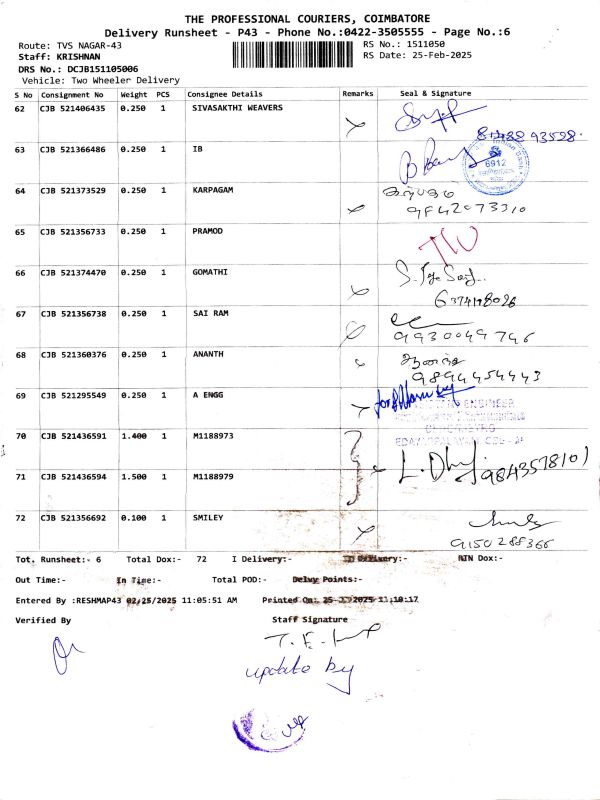 THE PROFESSIONAL COURIERS, COIMBATORE
Delivery Runsheet - P43 - Phone No.:0422-3505555 - Page No.:6
Route: TVS NAGAR-43 RS No.: 1511050
Staff: KRISHNAN RS Date: 25-Feb-2025
DRS No.: DCJB151105006
Vehicle: Two Wheeler Delivery
S No Consignment No Weight PCS Consignee Details Remarks Seal & Signature
62 CJB 521406435 0.250 1 SIVASAKTHI WEAVERS
63 CJB 521366486 0.250 1 IB
6912
64 CJB 521373529 0.250 1 KARPAGAM
9842073310
65 CJB 521356733 0.250 1 PRAMOD
66 CJB 521374470 0.250 1 GOMATHI
6374178026
67 CJB 521356738 0.250 1 SAI RAM
9930049746
68 CJB 521360376 0.250 1 ANANTH
9894454443
69 CJB 521295549 0.250 1 A ENGG
ENGINEER
70 CJB 521436591 1.400 1 M1188973
71 CJB 521436594 1.500 1 M1188979
9843578101
72 CJB 521356692 0.100 1 SMILEY
9150288366
Tot. Runsheet:- 6 Total Dox:- 72 I Delivery:- II Delivery:- NIN Dox:-
Out Time:- In Time:- Total POD:- Delvy Points:-
Entered By :RESHMAP43 02/25/2025 11:05:51 AM Printed On: 11:10:17
Verified By Staff Signature
update by